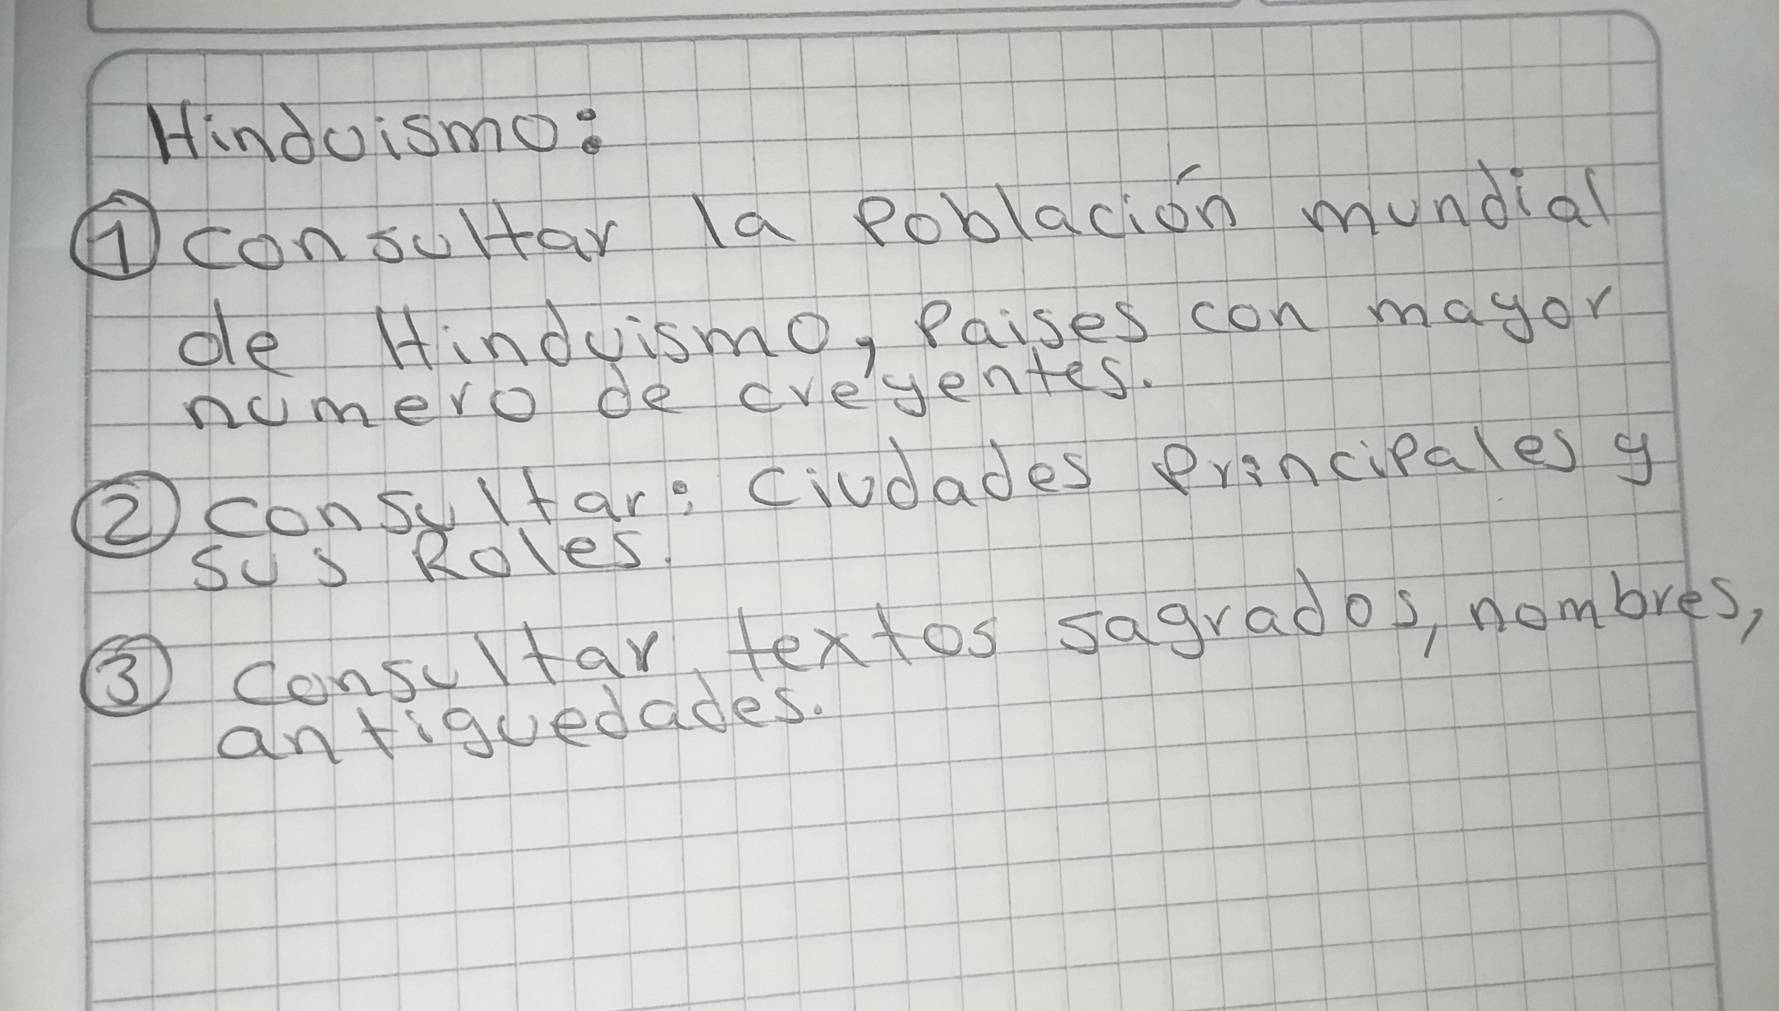 Hinduismo:
① consultar la Población mundial
de Hinduismo, Paises con mayor
numero de creyentes.
② consultar: ciudades Principales y
sus Roles.
③ consultar textos sagrados, nombres,
antiguedades.